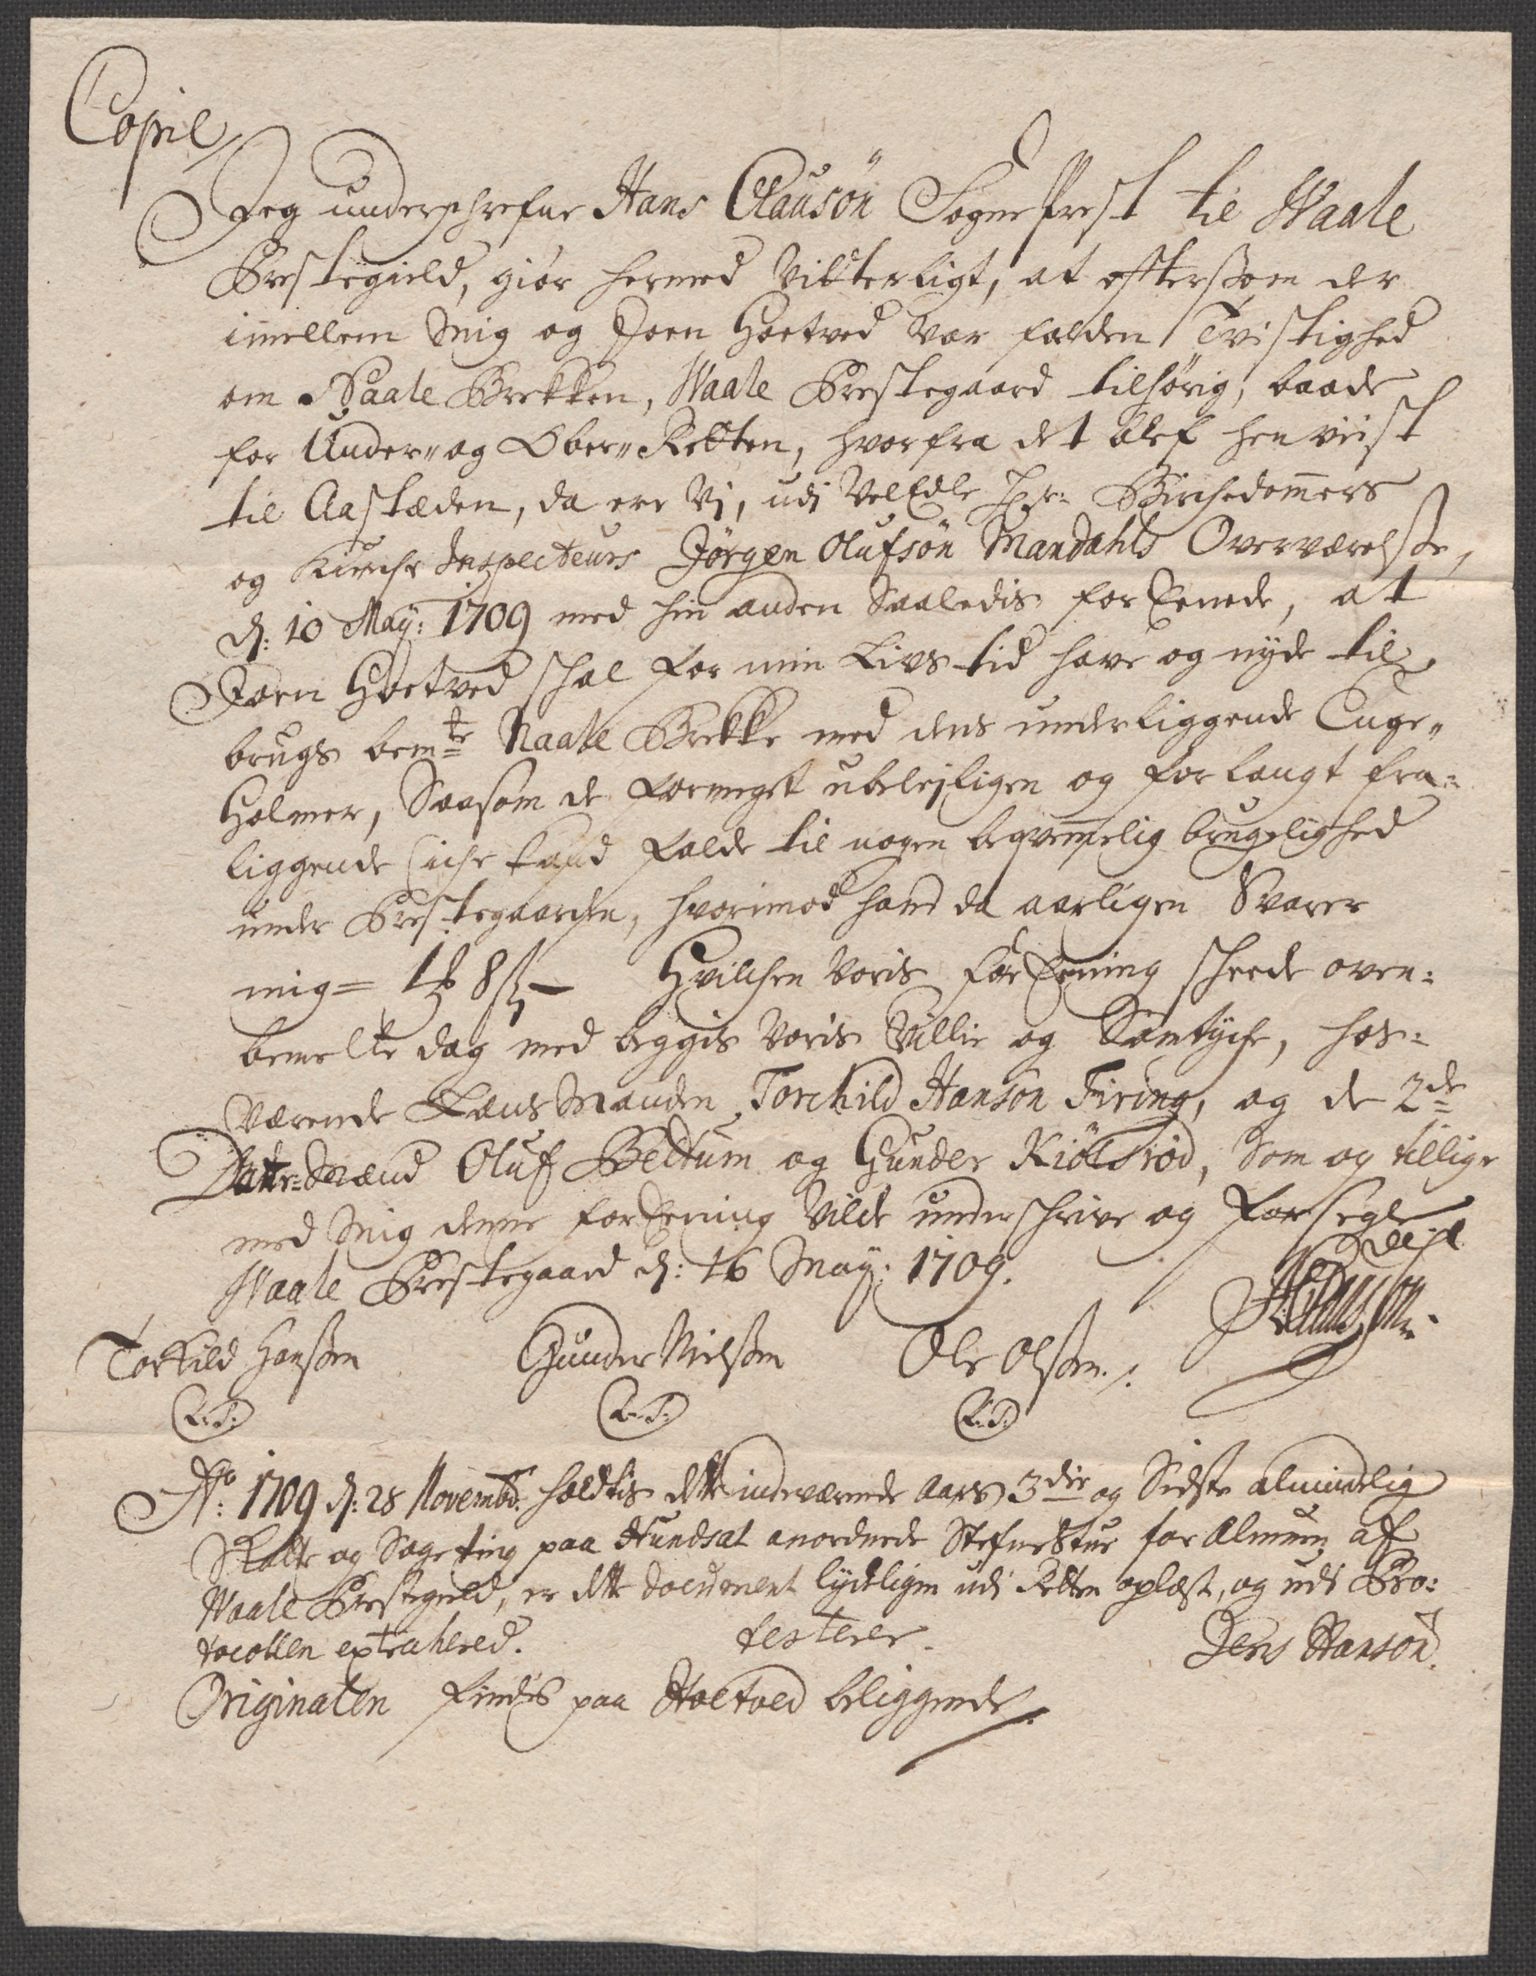 Copie
Jeg underschrefne Hans Clausøn Sogneprest til Waale
Prestegield, giør hermed Vitterligt, at eftersom der
imellem Mig og Joen Hoetved Var falden Tvistighed
om Naale Brekken, Waale Prestegaard tilhørig, baade
for Under- og Ober- Retten, hvorfra det blef henviist
til Aastæden, da ere Vj, udj VelEdle Hr: Birchedomers
og Kirche Inspecteurs Jørgen Olufsøn Mandahls Overværelse,
d: 10 May: 1709 med hin anden Saaledis forEenede, at
Joen Hoetved schal for min Livs tid have og nyde til
brugs bemte Naale Brekke med dens underliggende Enge-
Holmer, Saasom de formeget ubelejligen og for langt fra-
liggende iche kand falde til nogen beqvemmelig brugelighed
under Prestegaarden, hvorimod hand da aarligen Svarer
mig = 1 8 ß - Hvilchen Voris forEening scheede oven-
bemelte dag med beggis Voris Villie og Samtyche, hos-
Værende LænsManden Torchild Hansøn Firing, og de 2de
Dannemænd Oluf Beltum og Gunder Kiølsrød, Som og tillige
med Mig denne forEening Vilde underschrive og forsegle
Waale Prestegaard d: 16 May: 1709. HClausøn
Torkild Hanssen Gunder Nielssen Ole Olssen
L.S: L.S: L.S:
Ao: 1709 d: 28 Novembr: holdtis dette indeværende aars 3die og Sidste almindelig
Skatte og Sageting paa Hundsal anordnede Stefnestue for Almuen af
Waale Prestegield, er dette document lydeligen udi Retten oplæst, og udi Pro-
tocollen extrahered. testerer. Jens Hansøn.
Originalen findes paa Hoetved beliggende